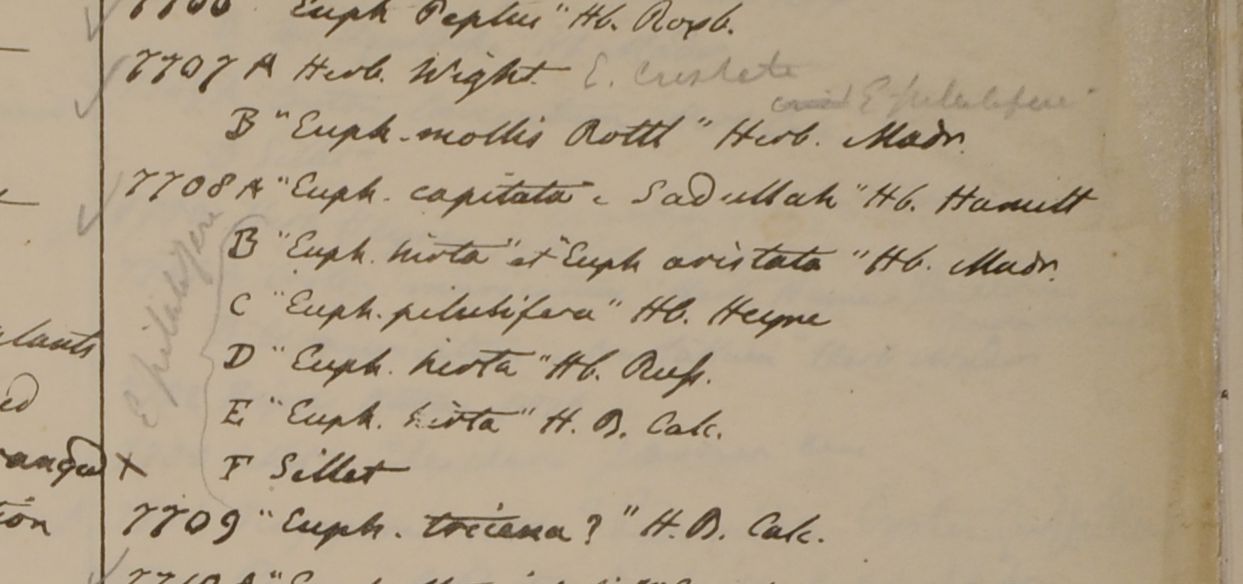 "Euph Peplus" Hb. Roxb.
7707 A Herb. Wight. E. cristata
and E pilulifera
B "Euph. mollis Rottl" Herb. Madr.
7708 A "Euph. capitata. Sadullah" Hb. Hamilt
B "Euph. hirta" et "Euph aristata" Hb. Madr.
C "Euph. pilulifera" Hb. Heyne
D "Euph. hirta" Hb. Russ.
E "Euph. hirta" H. B. Calc.
F Sillet
E pilulifera
7709 "Euph. ? " H. B. Calc.